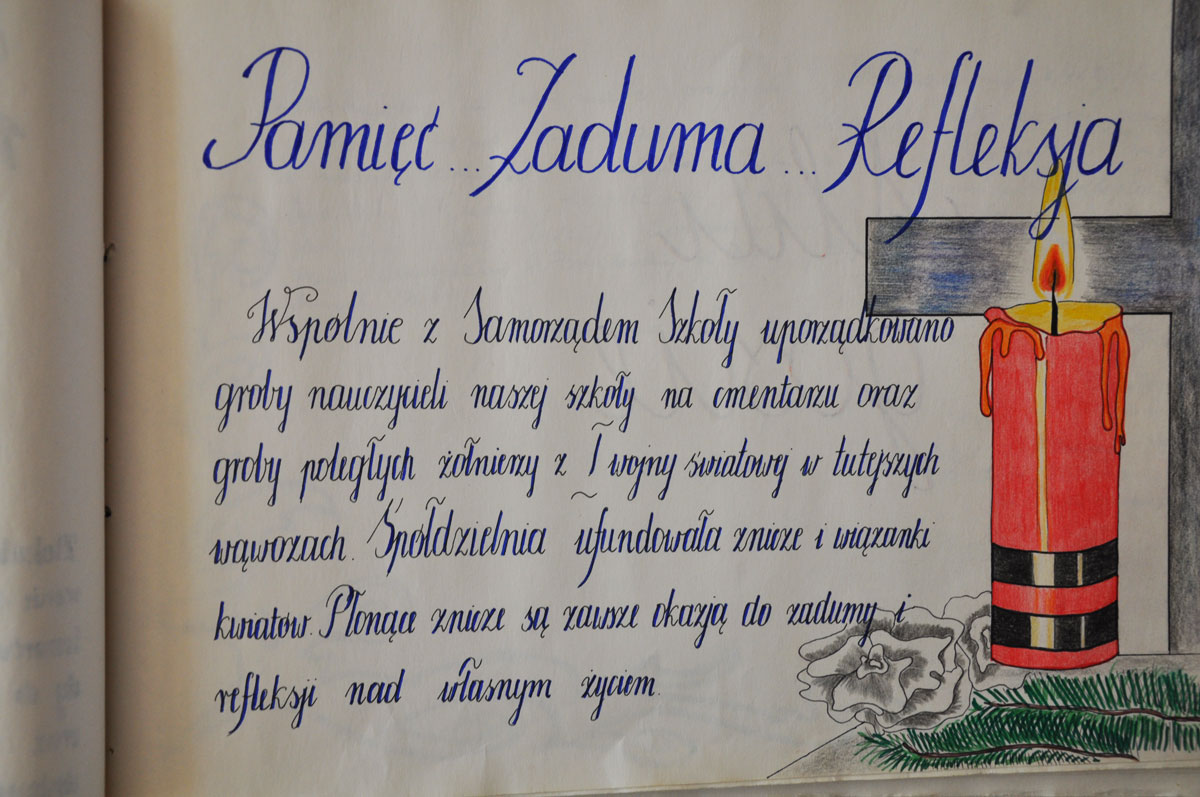 Pamięć ... Zaduma ... Refleksja
Wspólnie z Samorządem Szkoły uporządkowano
groby nauczycieli naszej szkoły na cmentarzu oraz
groby poległych żołnierzy z I wojny światowej w tutejszych
wąwozach. Spółdzielnia ufundowała znicze i wiązanki
kwiatów. Płonące znicze są zawsze okazją do zadumy i
refleksji nad własnym życiem.